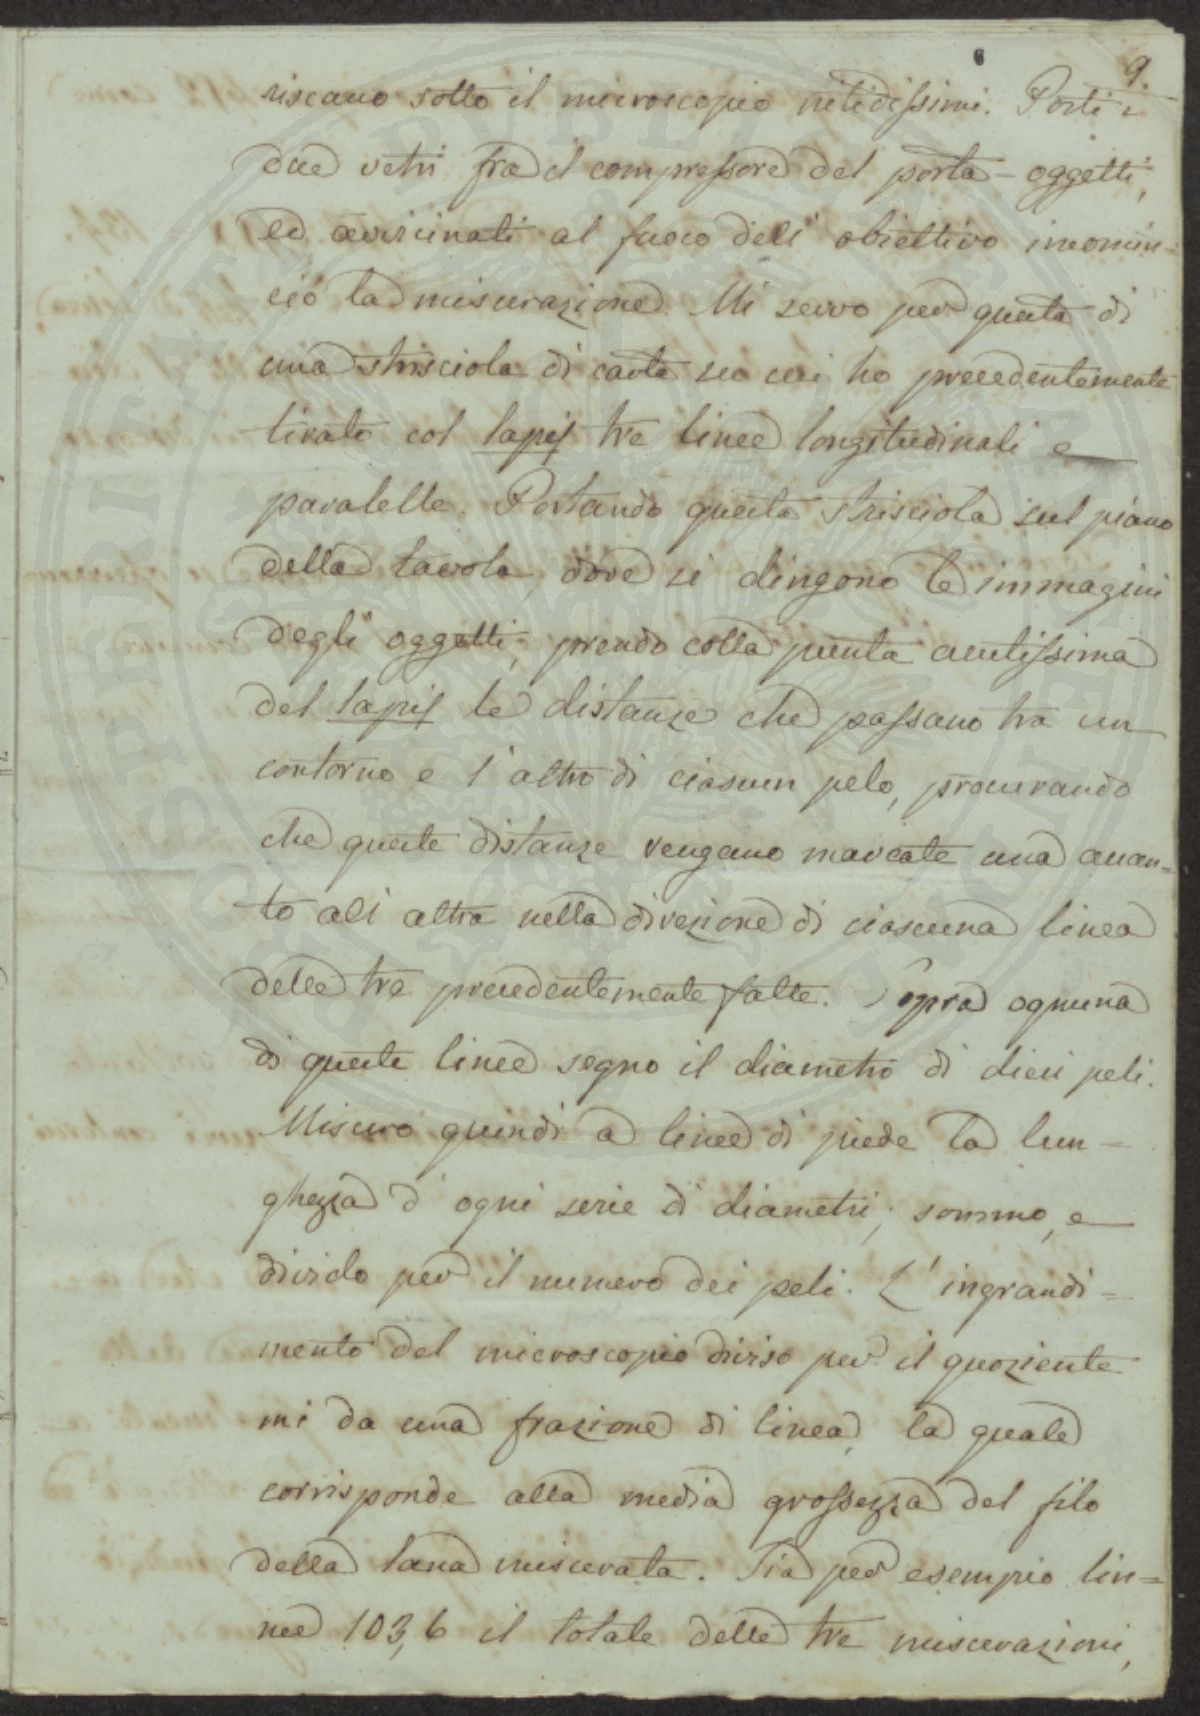 9.
riscano sotto il microscopio nitidissimi. Posti i
due vetri fra il compressore del porta-oggetti,
ed avvicinati al fuoco dell' obiettivo incomin=
cio la misurazione. Mi servo per questa di
una strisciola di carta su cui ho precedentemente
tirato col lapis tre linee longitudinali e
paralelle. Portando questa strisciola sul piano
della tavola, dove si dingono le immagini
degli oggetti, prendo colla punta acutissima
del lapis le distanze che passano tra un
contorno e l'altro di ciascun pelo, procurando
che queste distanze vengano marcate una acan=
to all altra nella direzione di ciascuna linea
delle tre precedentemente fatte. Sopra ognuna
di queste linee segno il diametro di dieci peli.
Misuro quindi a linee di piede la lun=
ghezza d' ogni serie di diametri, sommo, e
divido per il numero dei peli. L' ingrandi=
mento del microscopio diviso per il quoziente
mi da una frazione di linea, la quale
corrisponde alla media grossezza del filo
della lana misurata. Sia per esempio lin=
nee 103,6 il totale delle tre misurazioni,